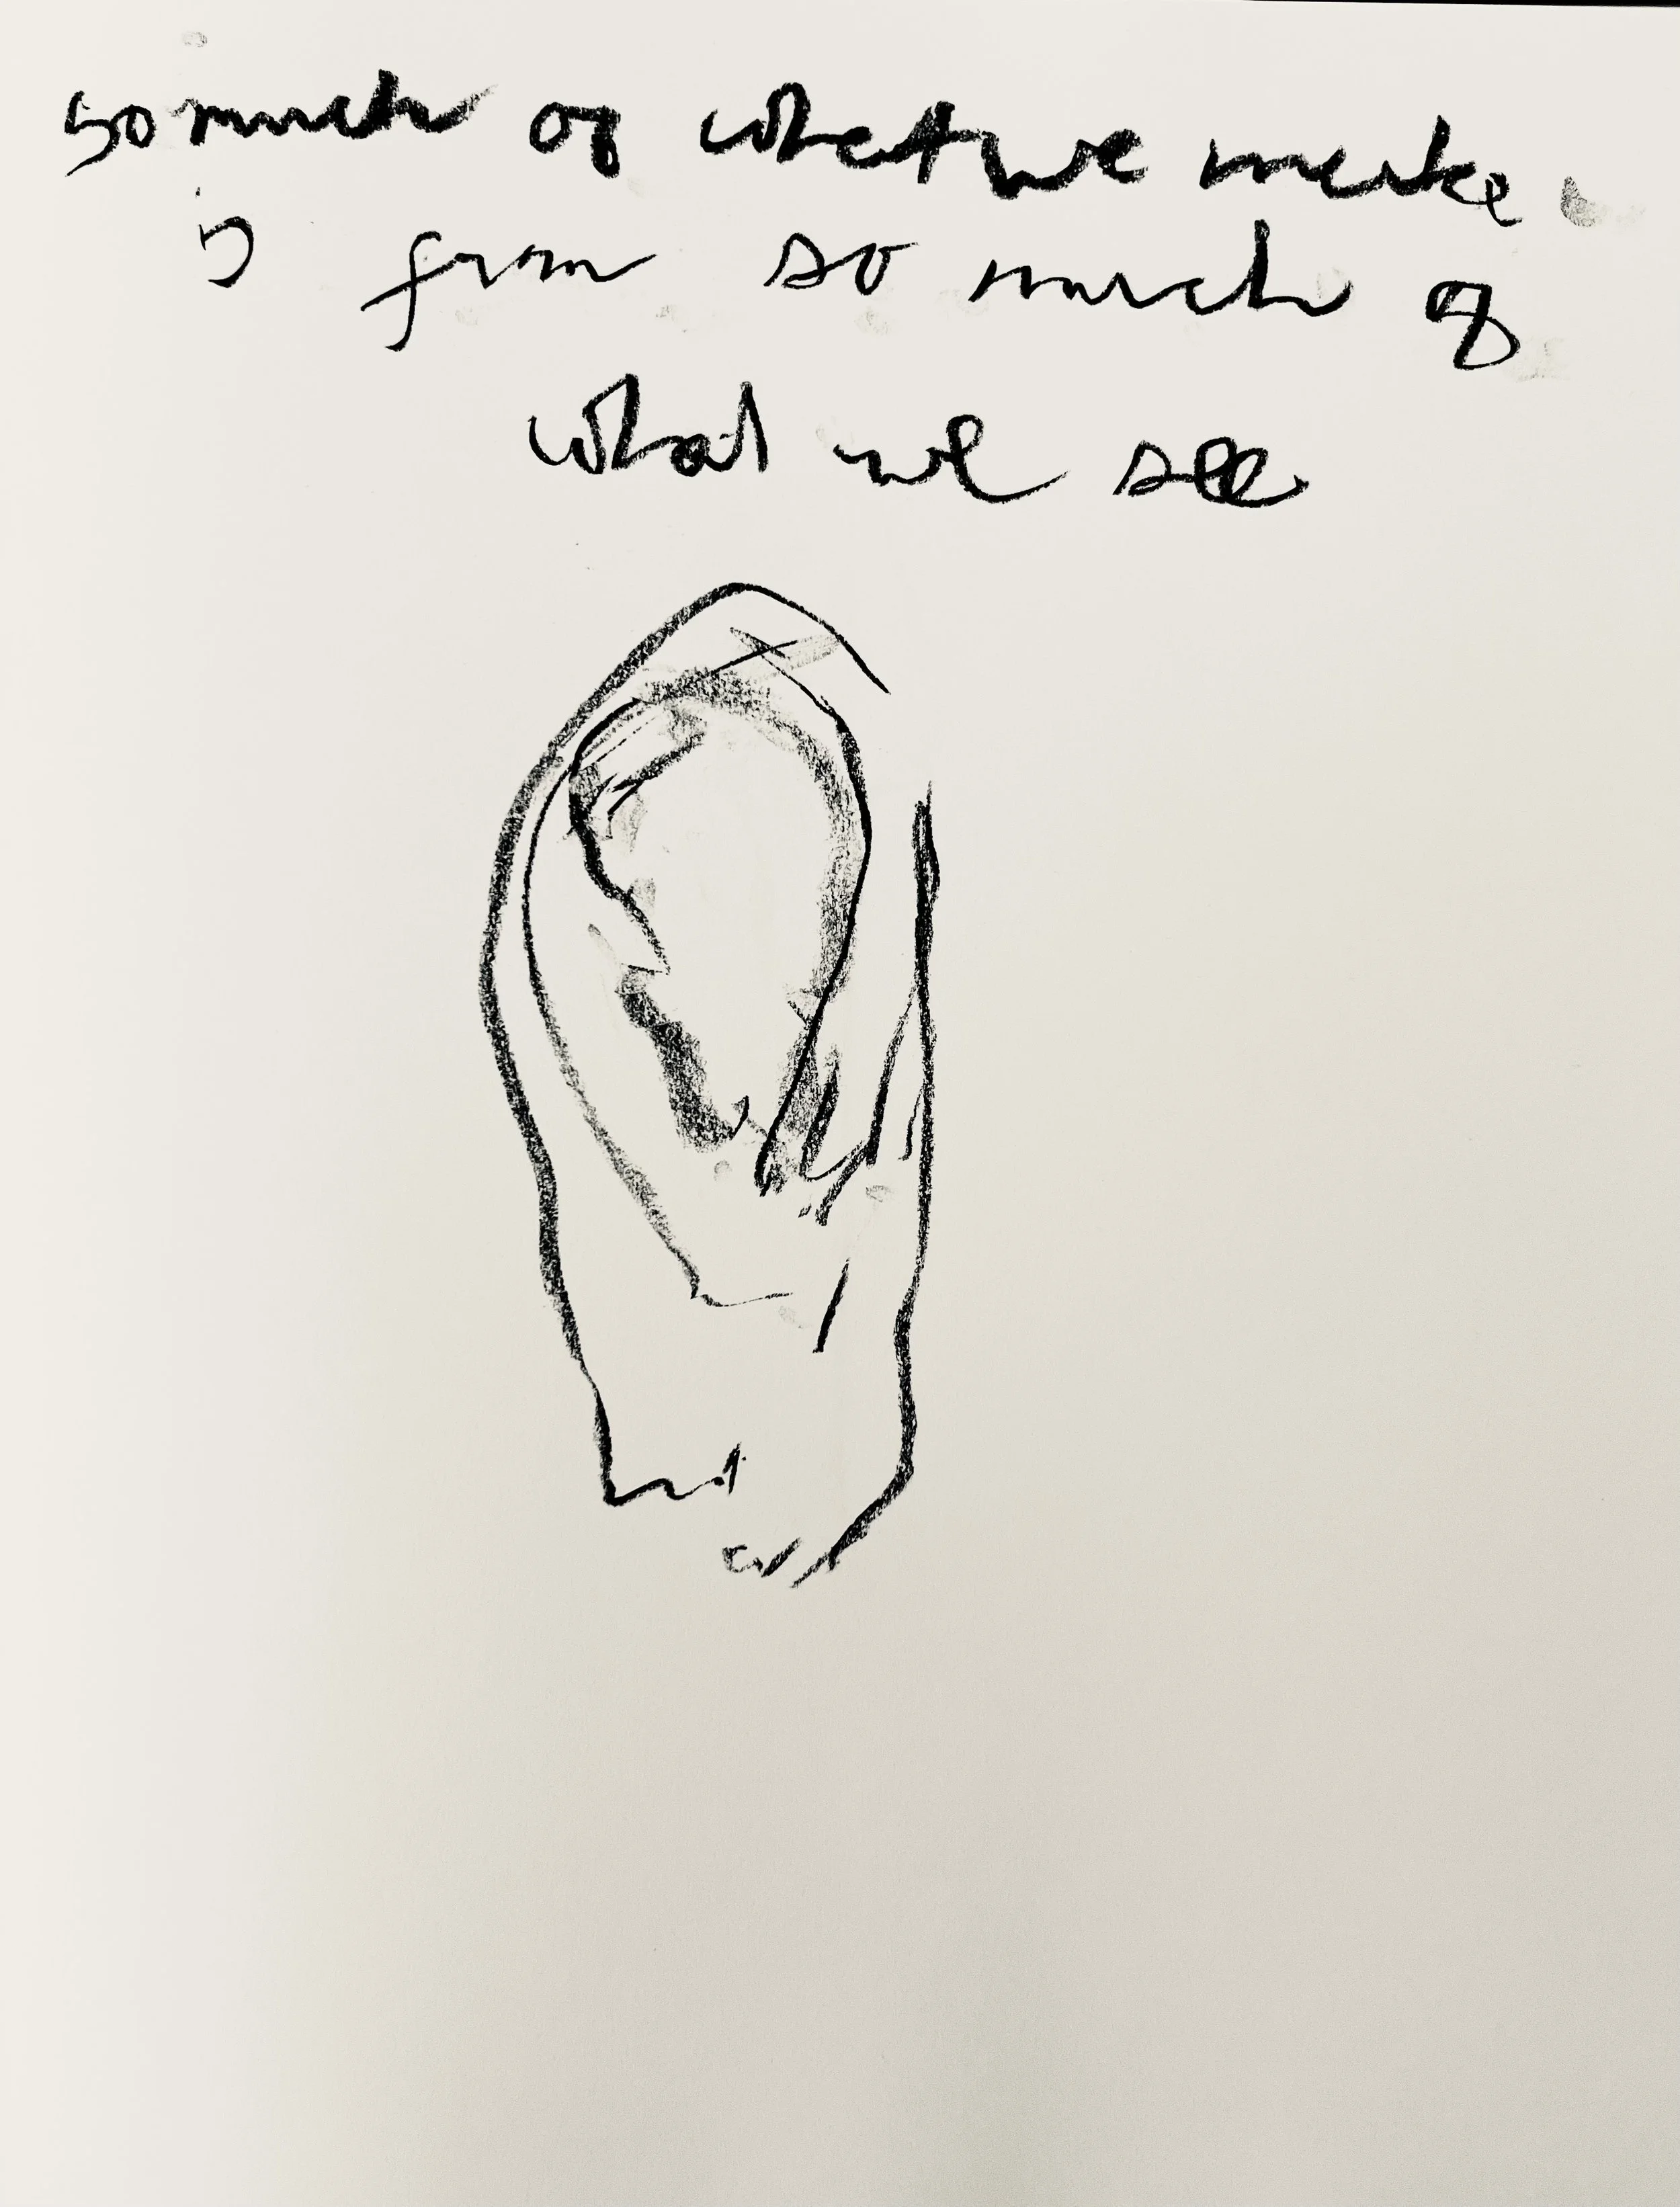 so much of what we make
is from so much of
what we see